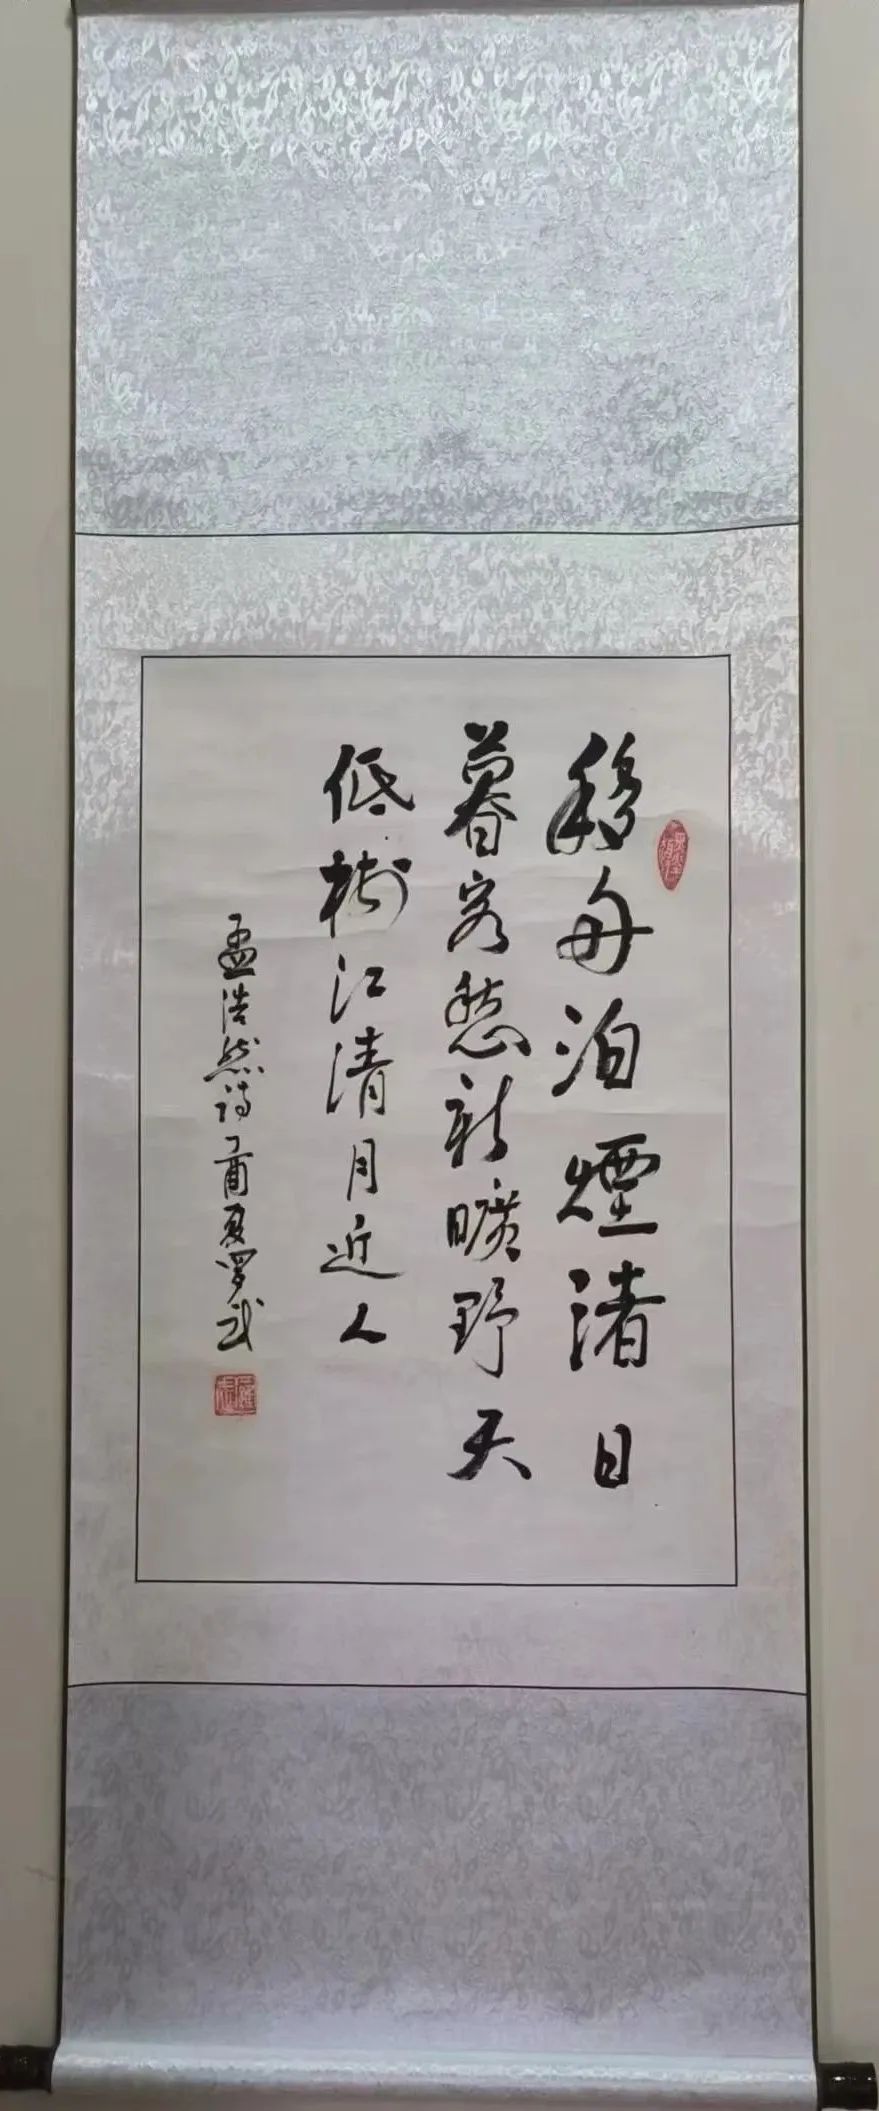 移舟泊煙渚日
暮客愁新曠野天
低樹江清月近人
孟浩然詩丁酉夏罗武